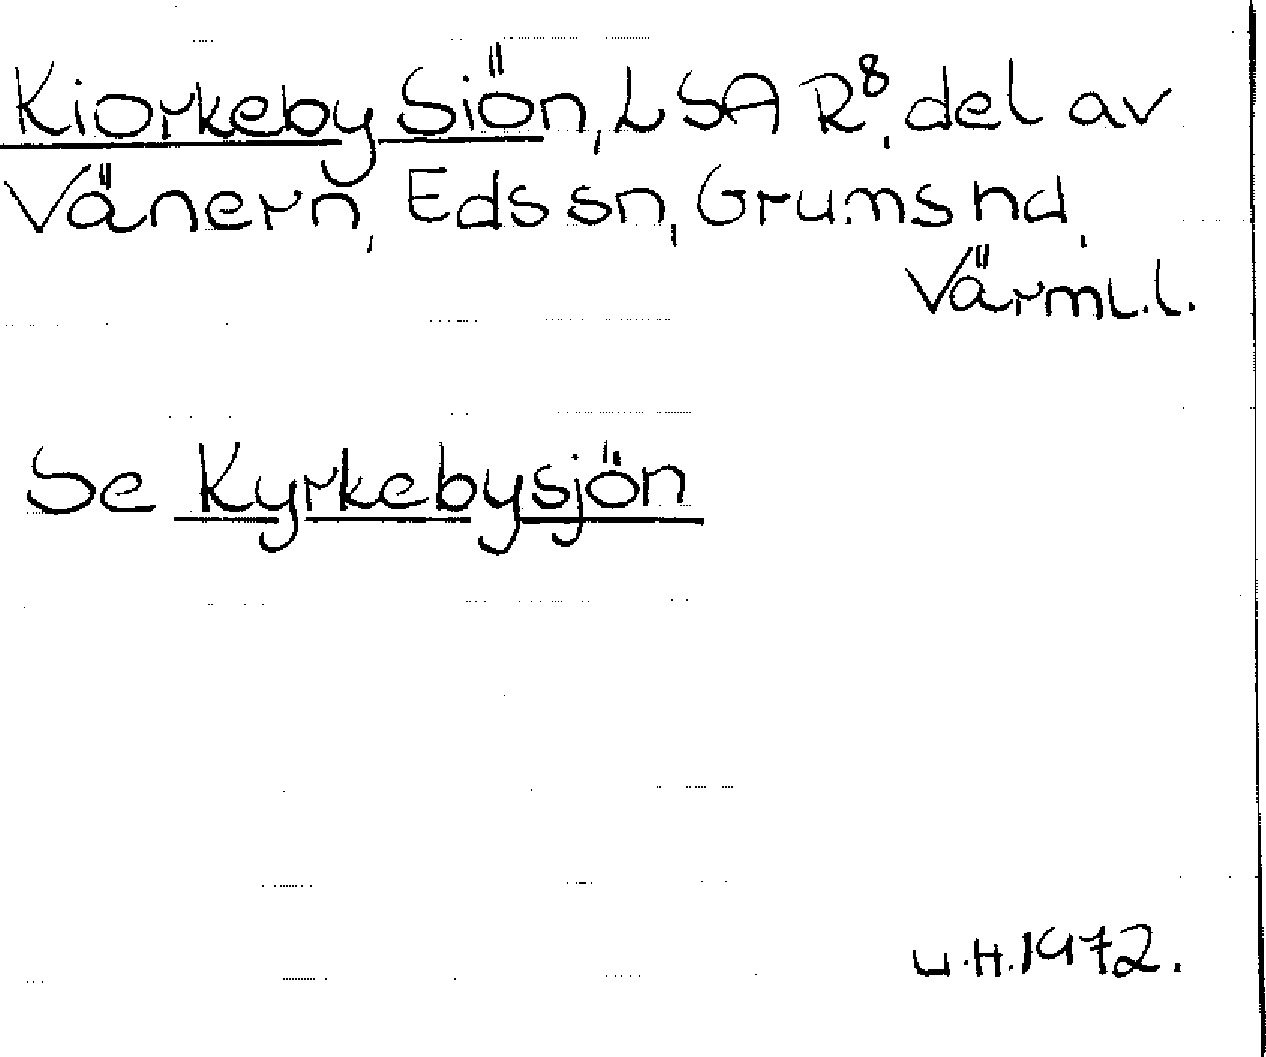 Kiorkeby Siön, LSA R⁸, del av
Vänern, Eds sn, Grums hd,
Värml.l.
Se Kyrkebysjön
U.H.1972.